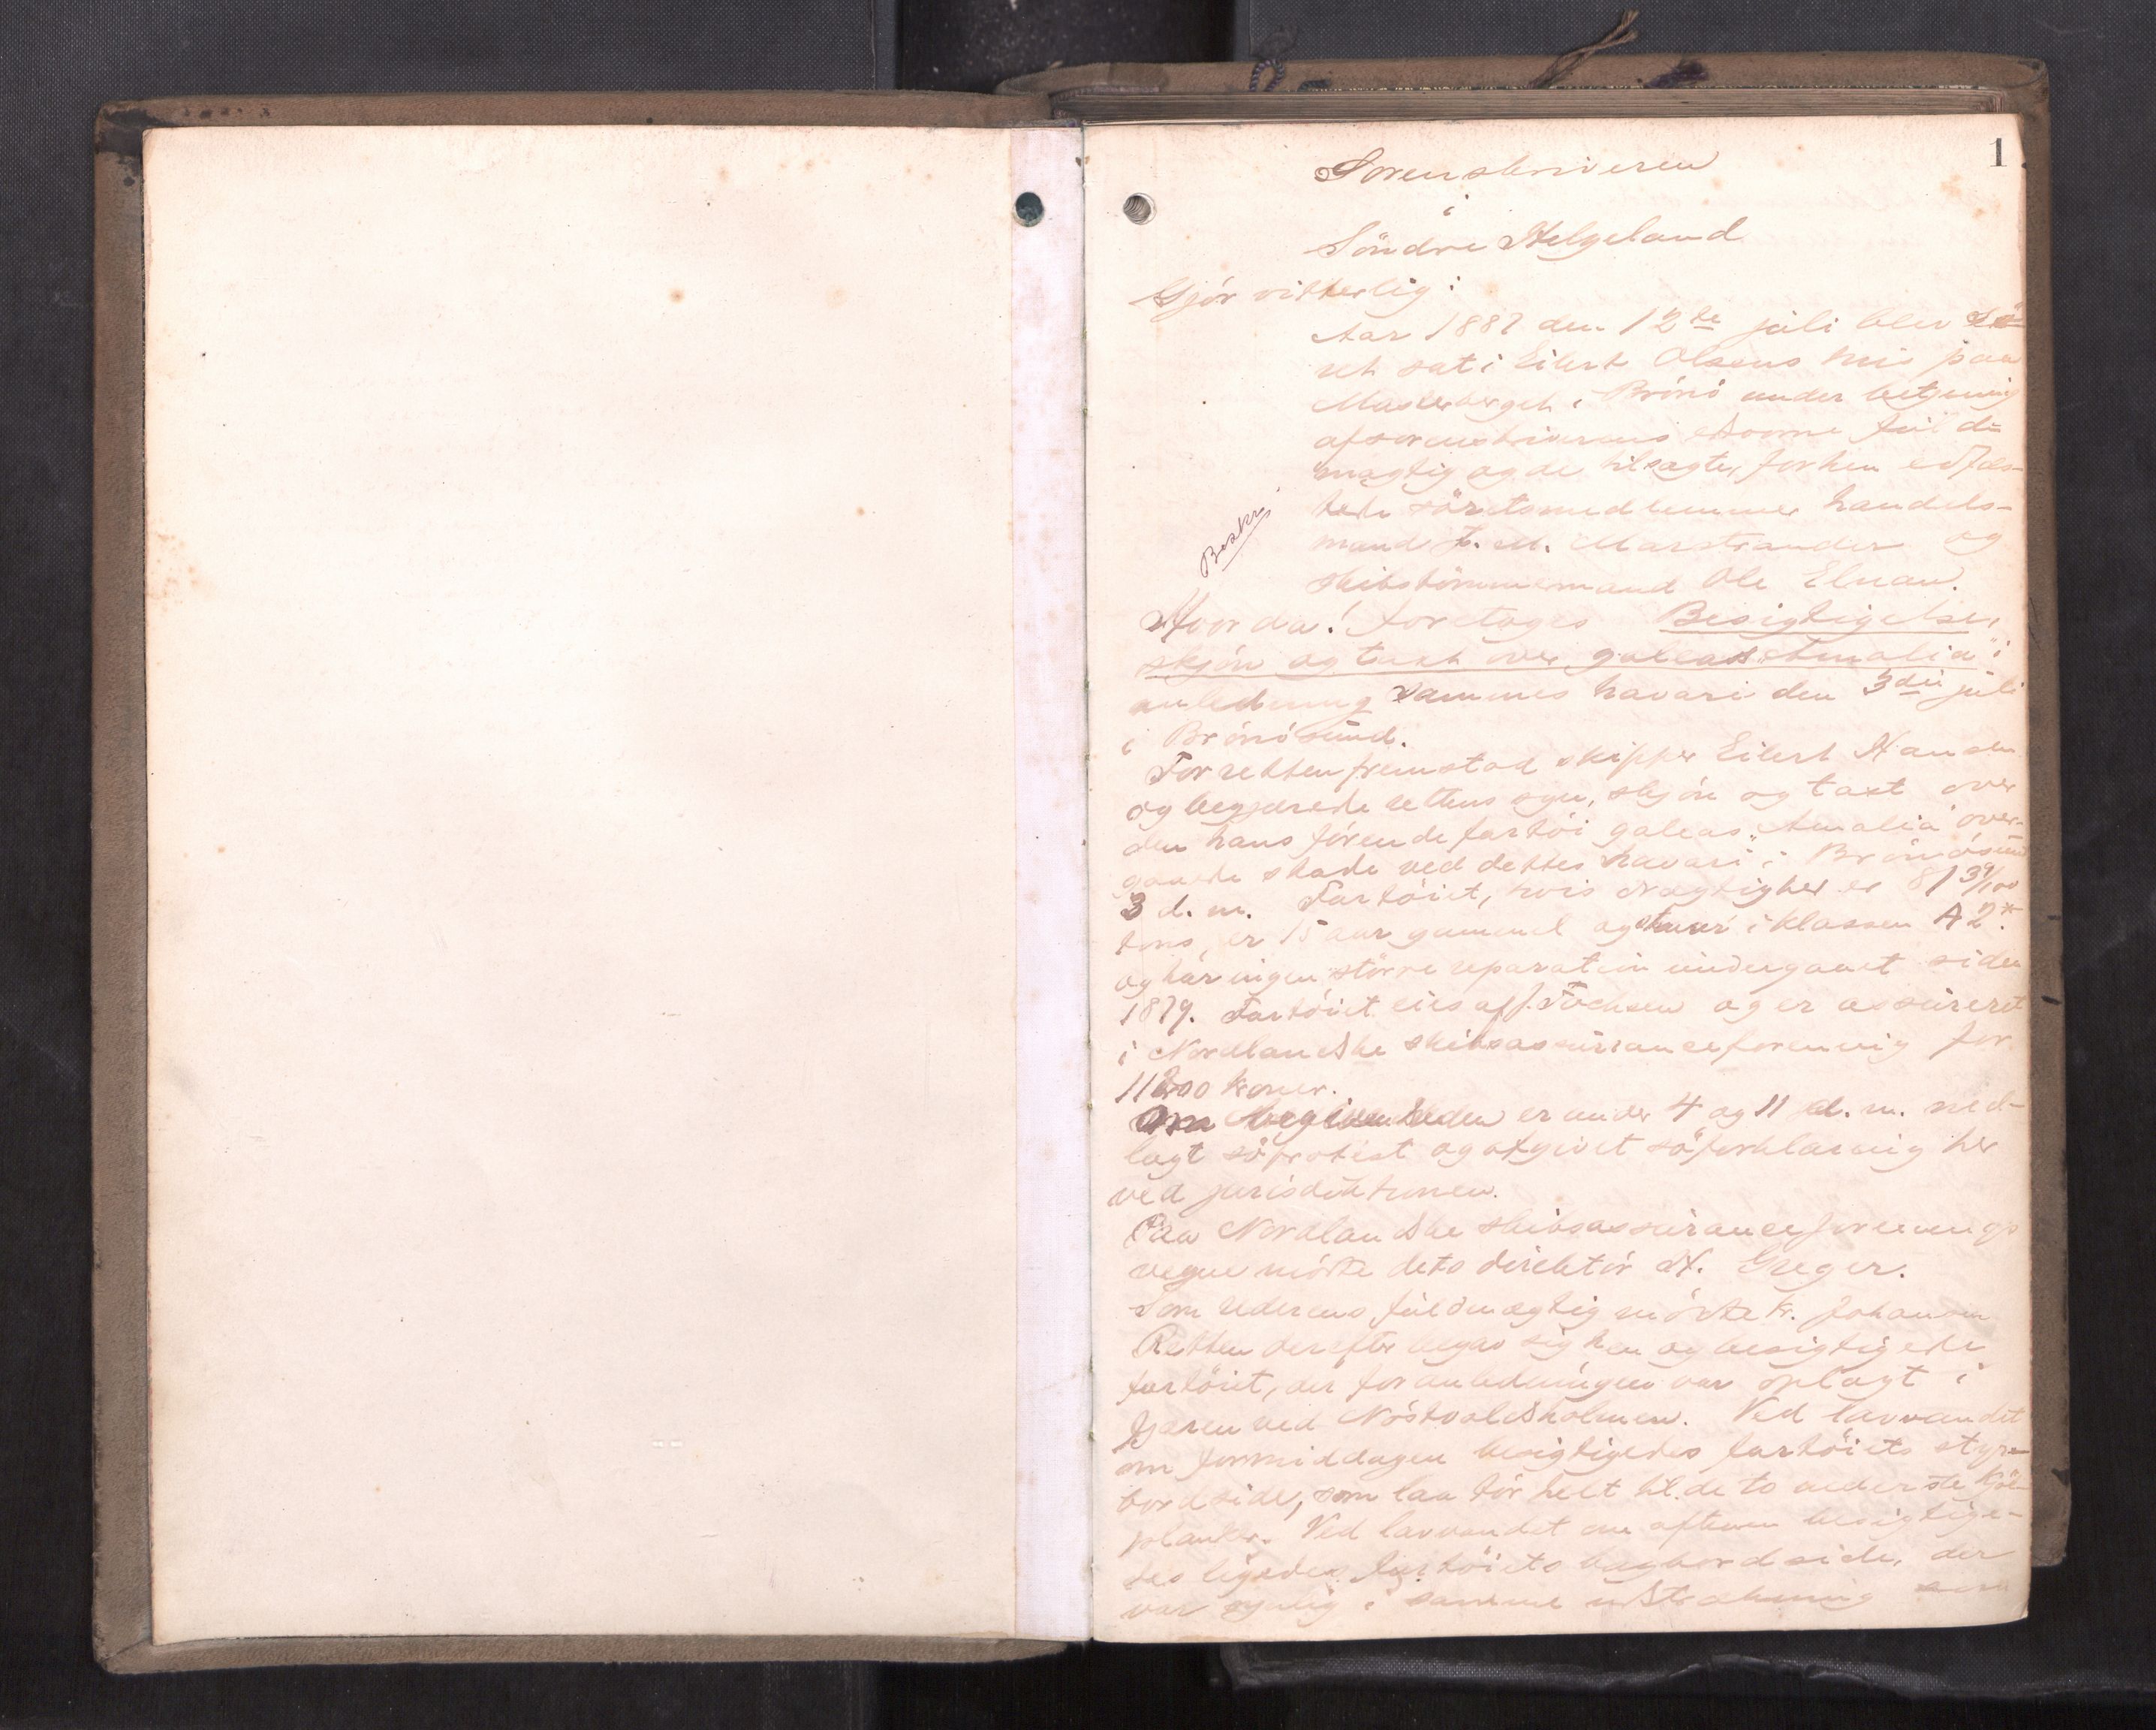 1
Sorenskriveren
i
Söndre Helgeland
Gjör vitterlig:
Aar 1887 den 12te juli blev Sö-
ret sat i Eilert Olsens hus paa
i Brönö under betjening
af sorenskriverens fuld-
mægtig og de tilsagte, forhen edfæs-
tede söretsmedlemmer handels-
mand Marstrander og
skibstömmermand Ole Elnan.
Beskr.
Hvorda! foretoges Besigtigelse,
skjön og taxt over galeas "Amalia" i
anledning sammes havari den 3die juli
i Brönösund.
For retten fremstod skipper Eilert Hansen
og begjærede rettens syn, skjön og taxt over
den hans förende fartöi galeas "Amalia" over-
gaaede skade ved dettes havari i Brönösund
3 d. m. Fartöiet, hvis drægtighed er 81 39/100
tons, er 15 aar gammel og staar i klassen A2*.
og har ingen större reparation undergaaet siden
1879. Fartöiet eies af J. og er assureret
i Nordlandske skibsassuranceforening for
11800 kroner.
Om begivenheden er under 4 og 11 d. m. ned-
lagt söprotest og afgivet söforklaring her
ved jurisdiktionen.
Paa Nordlandske skibsassuranceforenings
vegne mödte dets direktör H. Greger.
Som rederens fuldmægtig mödte Kr. Johansen
Retten derefter begav sig hen og besigtigede
fartöiet, der for anledningen var oplagt i
fjæren ved Nöstvoldsholmen. Ved lavvandet
om formiddagen besigtigedes fartöiets styr-
bordside, som laa tör helt til de to nederste kjöl-
planker. Ved lavvandet om aftenen besigtige-
des ligedes fartöiets bagbordside, der
var synlig i samme udstrækning som